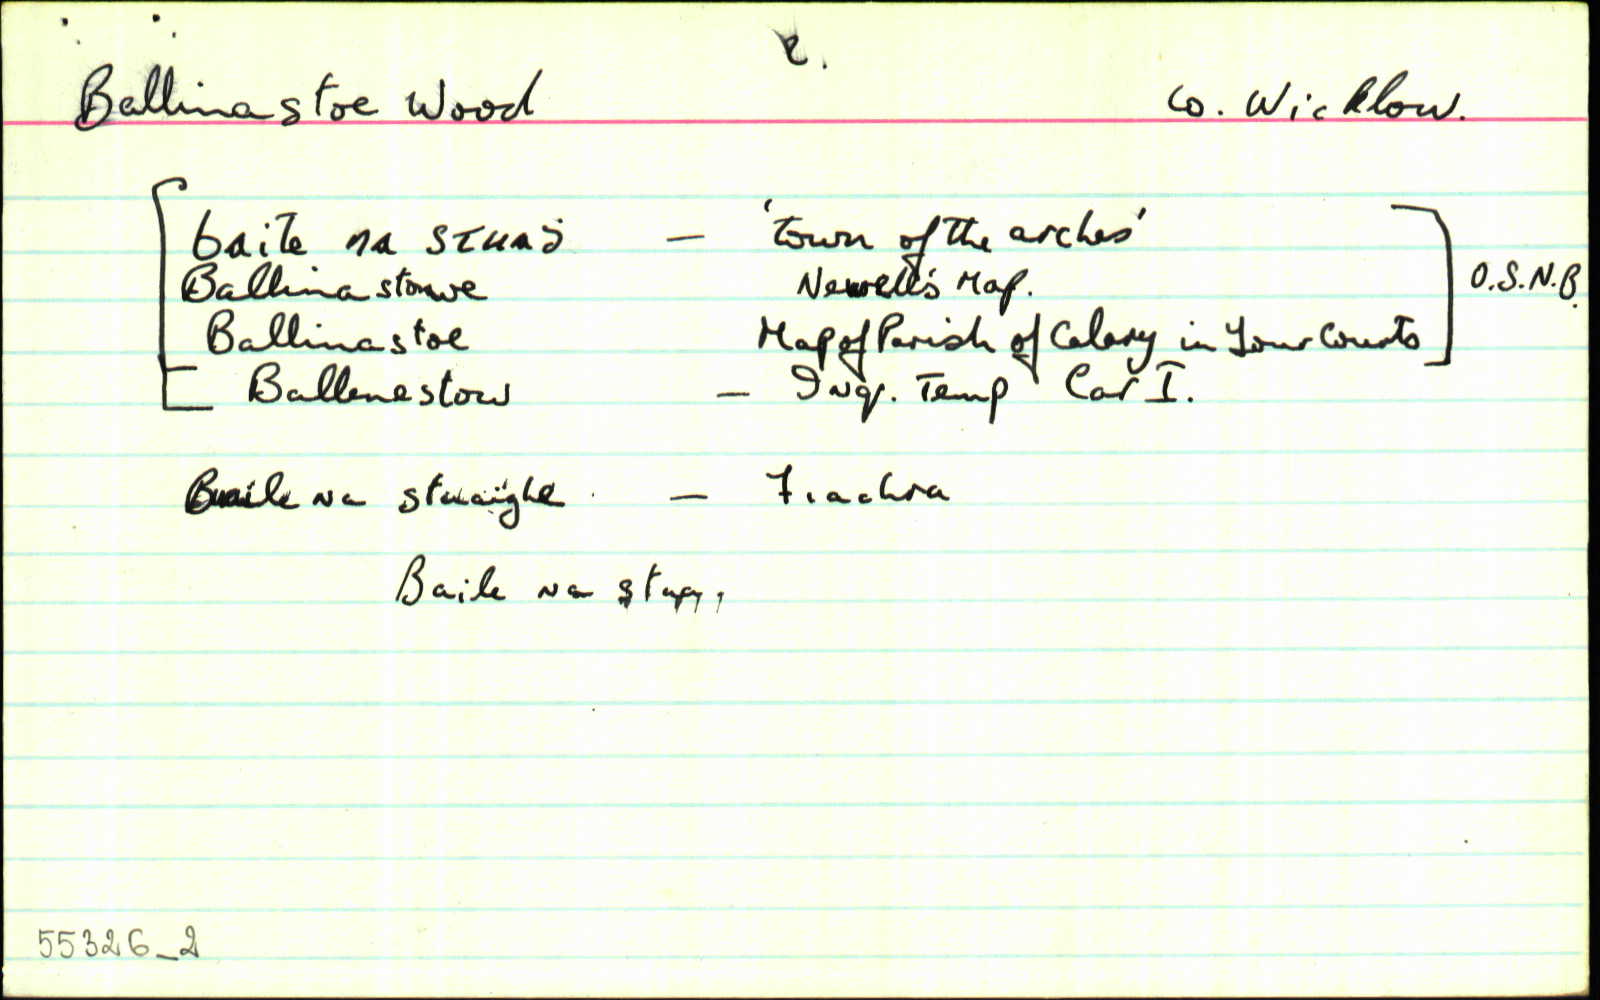 2.
Ballinastoe Wood Co. Wicklow.
baile na stuaġ — 'town of the arches'
Ballinastowe Newell's Map. O.S.N.B.
Ballinastoe Map of Parish of Calary in Four Courts
Ballenestow — Inq. Temp Car I.
Baile na stuaighe — Fiachra
Baile na
55326_2